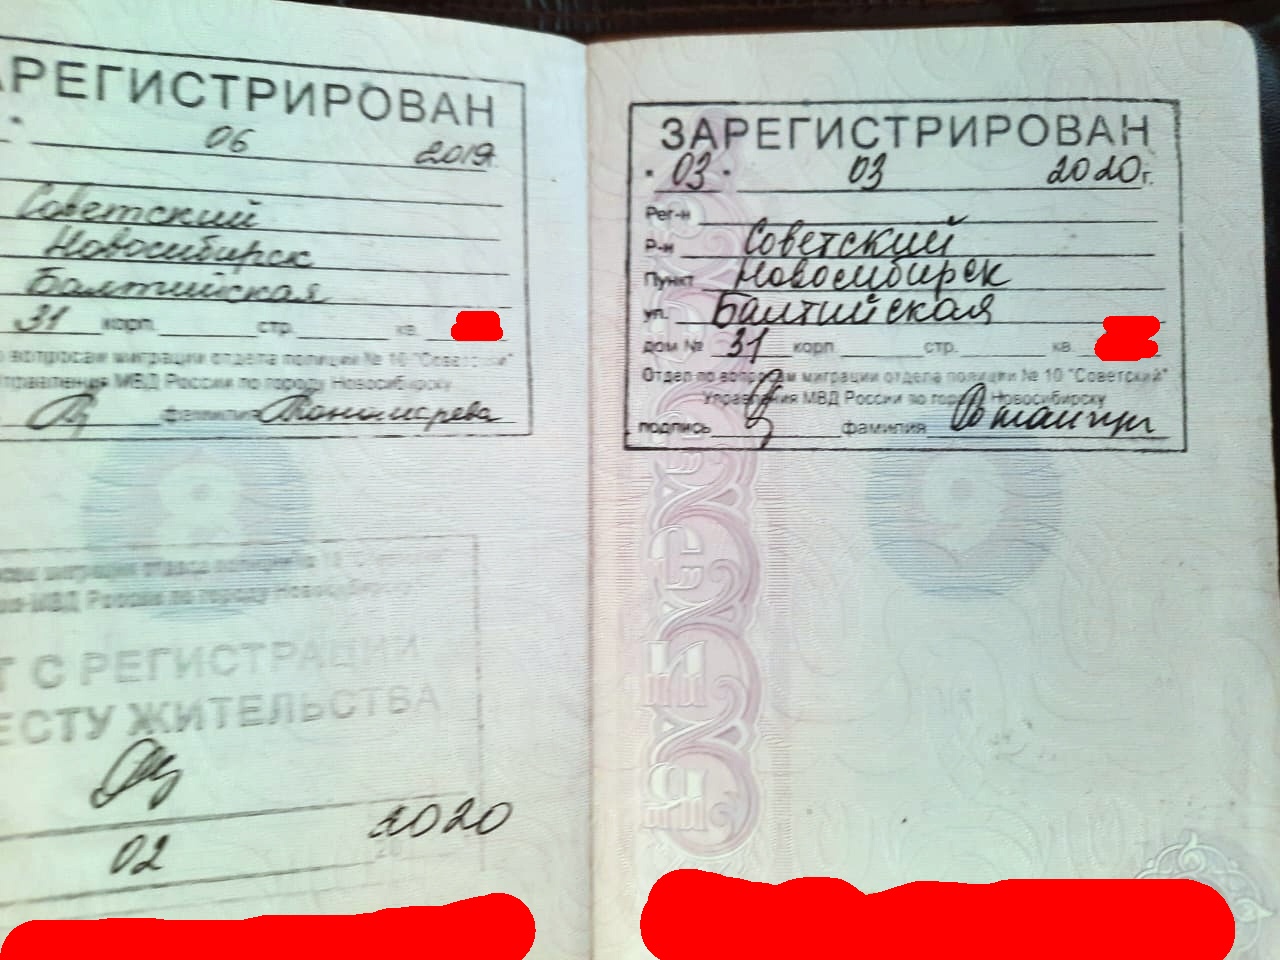 АРЕГИСТРИРОВАН
06 2019
Советский
Новосибирск
Балтийская
31 корп. стр. кв.
вопросам миграции отдела полиции № 10 "Советский"
Управления МВД России по городу Новосибирску
фамилия
миграции отдела полиции №
МВД России по городу Новосибирску
Т С РЕГИСТРАЦИИ
ЕСТУ ЖИТЕЛЬСТВА
02 2020
8
ЗАРЕГИСТРИРОВАН
03 03 2020г.
Рег-н
Р-н Советский
Пункт Новосибирск
ул. Балтийская
дом № 31 корп. стр. кв.
Отдел по вопросам миграции отдела полиции № 10 "Советский"
Управления МВД России по городу Новосибирску
подпись фамилия
9